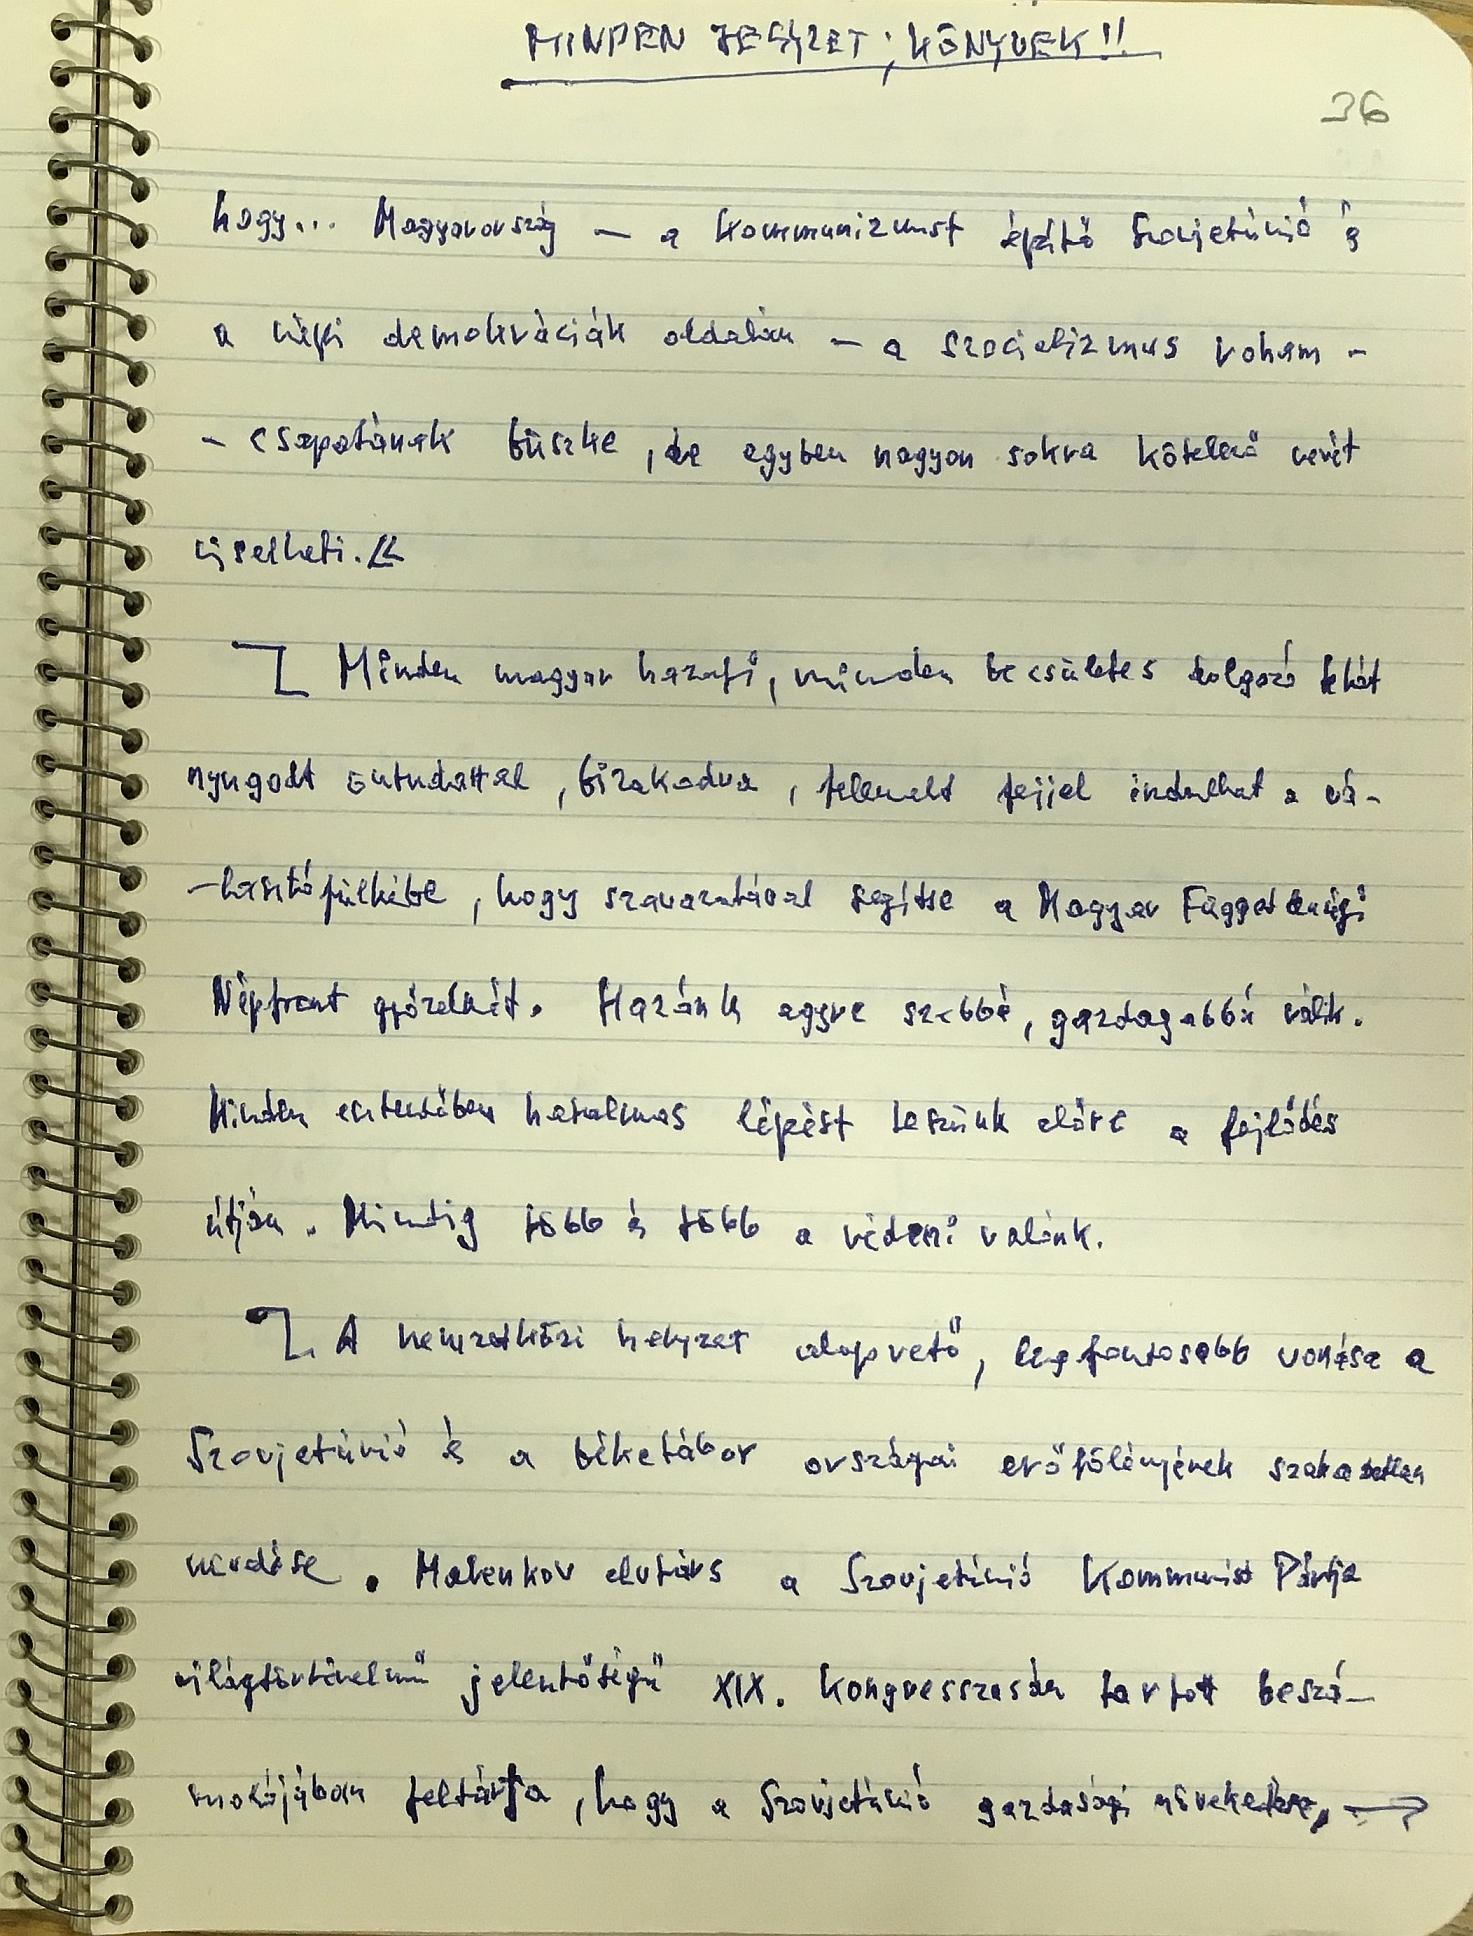 MINDEN JEGYZET; KÖNYVEK!!
36
hogy... Magyarország — a kommunizmust építő Szovjetúnió és
a népi demokráciák oldalán — a szocializmus roham -
- csapatának büszke, de egyben nagyon sokra kötelező nevét
viselheti.«
Minden magyar hazafi, minden becsületes dolgozó tehát
nyugodt öntudattal, bizakodva, felemelt fejjel indulhat a vá-
-lasztófülkébe, hogy szavazatával segítse a Magyar Függetlenségi
Népfront győzelmét. Hazánk egyre szebbé, gazdagabbá válik.
Minden esztendőben hatalmas lépést teszünk előre a fejlődés
útján. Mindig több és több a védeni valónk.
A nemzetközi helyzet alapvető, legfontosabb vonása a
Szovjetúnió és a béketábor országai erőfölényének szakadatlan
növekedése. Malenkov elvtárs a Szovjetúnió Kommunista Pártja
világtörténelmű jelentőségű XIX. Kongresszusán tartott beszá-
molójában feltárta, hogy a Szovjetúnió gazdasági növekedése, →